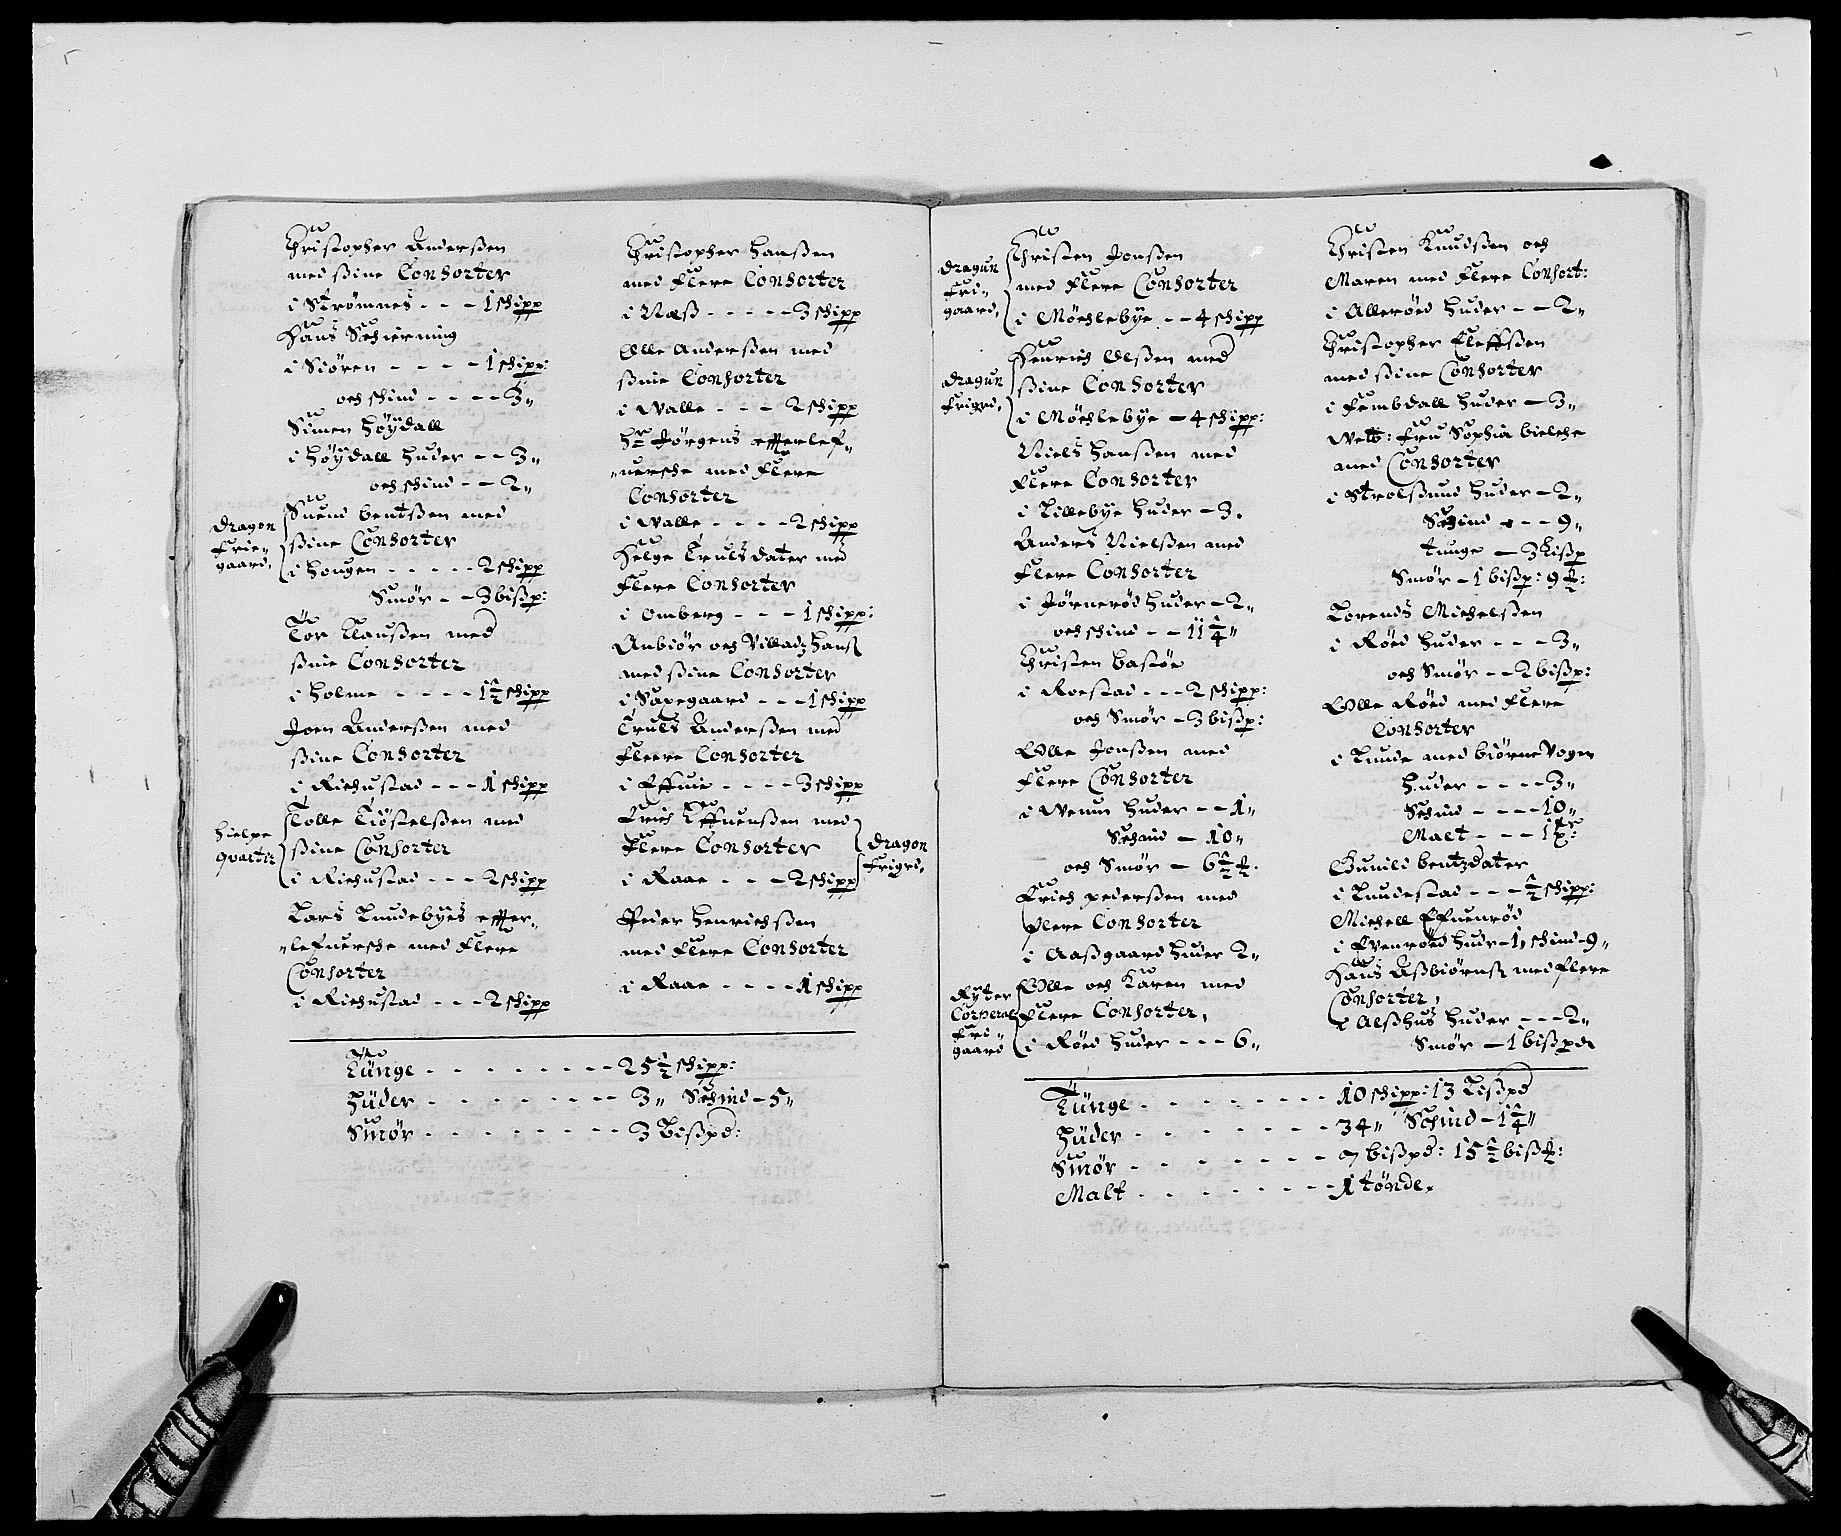 Christopher Anderßen
med ßine Consorter
i Strømnes - - - 1 schipp
Hans Schierming
i Siøren - - - - - 1 schipp:
och schind - - - - 3„
Simen Høÿdall
i Høÿdall huder - - 3„
och schind - - 2„
Dragon
Frie-
gaard,
Suend bentßen med
ßine Consorter
i Hougen - - - - - 2 schipp
Smør - - 3 bißp:
Tor Clausßen med
ßine Consorter
i Holme - - - - 1½ schipp
Joen Anderßen med
ßine Consorter
i Riehustad - - - 1 schipp
Hielpe
quarter
Tolle Tiøstelßen med
ßine Consorter
i Riehustad - - - 2 schipp
Lars Lundebyes effter-
„lefuersche med flere
Consorter
i Riehustad - - - 2 schipp
Christopher Hanßen
med flere Consorter
i Næß - - - - - 3 schipp
Olle Anderßen med
ßine Consorter
i Walle - - - 2 schipp
Hr Jørgens effterlef„
„uersche med flere
Consorter
i Walle - - - - 2 schipp
Helge Truls dater med
flere Consorter
i Omberg - - - 1 schipp:
Anbiør och Villadz Hans
med ßine Consorter
i Saxegaard - - - 1 schipp
Truls Anderßen med
fleere Consorter
i Effuie - - - - 3 schipp
Erich Effuenßen med
flere Consorter
i Raae - - - 2 schipp
Dragon
Frigrd,
Peder Henrichßen
med flere Consorter
i Raae - - - - 1 schipp
Tünge - - - - - - - - 25½ schipp:
Hüder - - - - - - - - 3„ Schind - 5„
Smør - - - - - - - - 3 Lißpd:
Dragun
Fri-
gaard,
Christen Jonßen
med flere Consorter
i Møchlebÿe - - 4 schipp
Dragun
Frigrd,
Henrich Olßen med
ßine Consorter
i Møchlebÿe - 4 schipp:
Niels Hanßen med
flere Consorter
i Lillebÿe huder - 3.
Anders Nielßen med
flere Consorter
i Jørnerød huder - 2„
och schind - - 11¼„
Christen Bastøe
i Roestad - - - 2 schipp:
och Smør - 3 bißp:
Olle Jonßen med
flere Consorter
i Werum huder - - 1„
Schind - 10„
och Smør - 6½ ℔.
Erich pederßen med
flere Consorter
i Aaßgaard huder 2„
Rÿter
Corperal
Fri-
gaard
Olle och Karen med
flere Consorter,
i Røed huder - - - 6„
Christen Knudßen och
Maren med flere Consort:
i Allerød huder - - 2„
Christopher Eleffßen
med ßine Consorter
i Fumbdall huder - 3„
Welb: fru Sophia bielche
med Consorter
i Strolßund huder - 2„
Schind - - - 9„
tunge - 3 Lißp
Smør - 1 bißp: 9 ℔:
Lorends Michelßen
i Røed huder - - - 3„
och Smør - - 2 bißp:
Olle Røed med flere
Consorter
i Lunde med biørneVogen
huder - - - - 3„
Schind - - - - 10„
Malt - - - 1 tr:
Gunild bentzdater
i Lundestad - - - ½ schipp:
Michell Effuenrød
i Euenrød hudr - 1, schind - 9„
Hans Aßbiørns med flere
Consorter,
i Alßhus huder - - - 2„
Smør - 1 bißpd
Tünge - - - - - - - - 10 schipp: 13 Lißpd
Hüder - - - - - - - - 34„ Schind - 1¼„
Smør - - - - - - - - 7 bißpd: 15½ biß℔:
Malt - - - - - - - - 1 tønde,